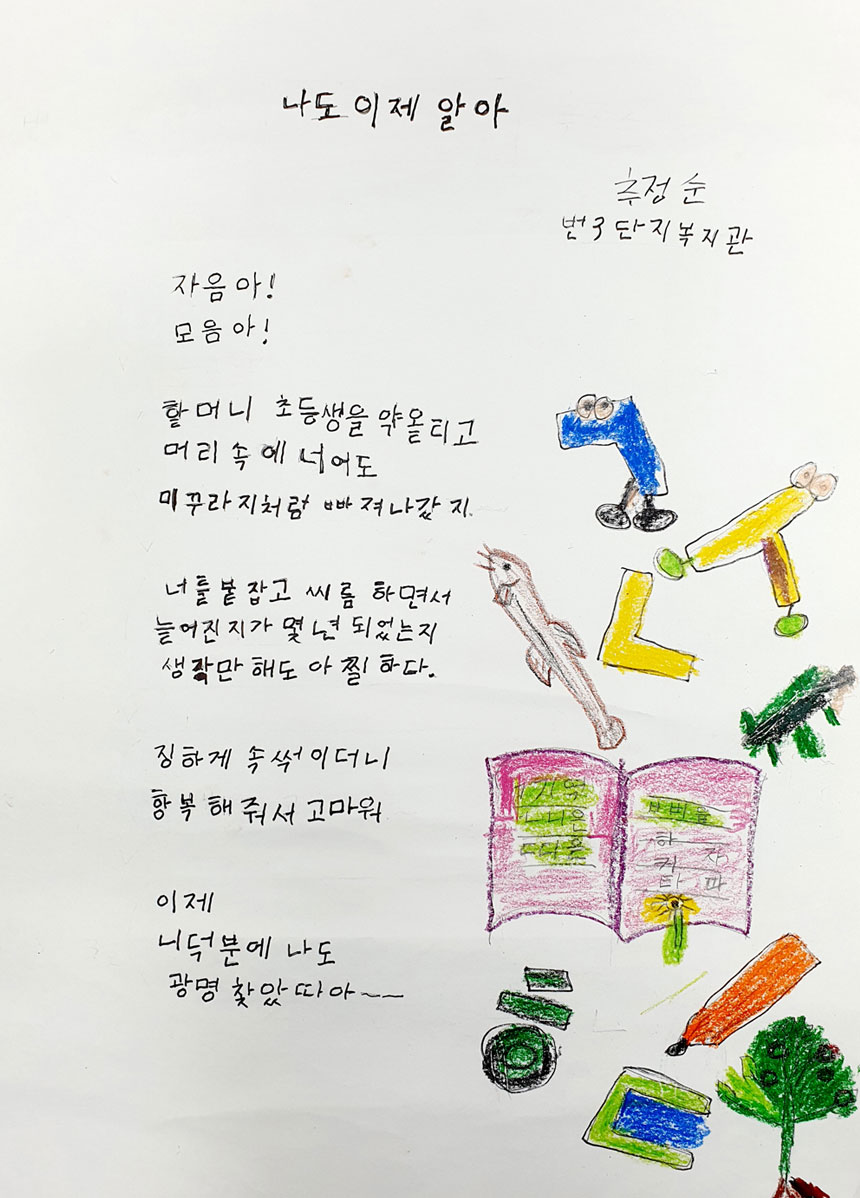 나도 이제 알아
추정순
번3단지복지관
자음아!
모음아!
할머니 초등생을 약올티고
머리 속에 너어도
미꾸라지처럼 빠져나갔지.
너틀붙잡고 씨름 하면서
늘어진지가 몇년 되었는지
생각만 해도 아찔하다.
징하게 속썩이더니
항복해줘서 고마워
이제
니덕분에 나도
광명 찾았따아~~